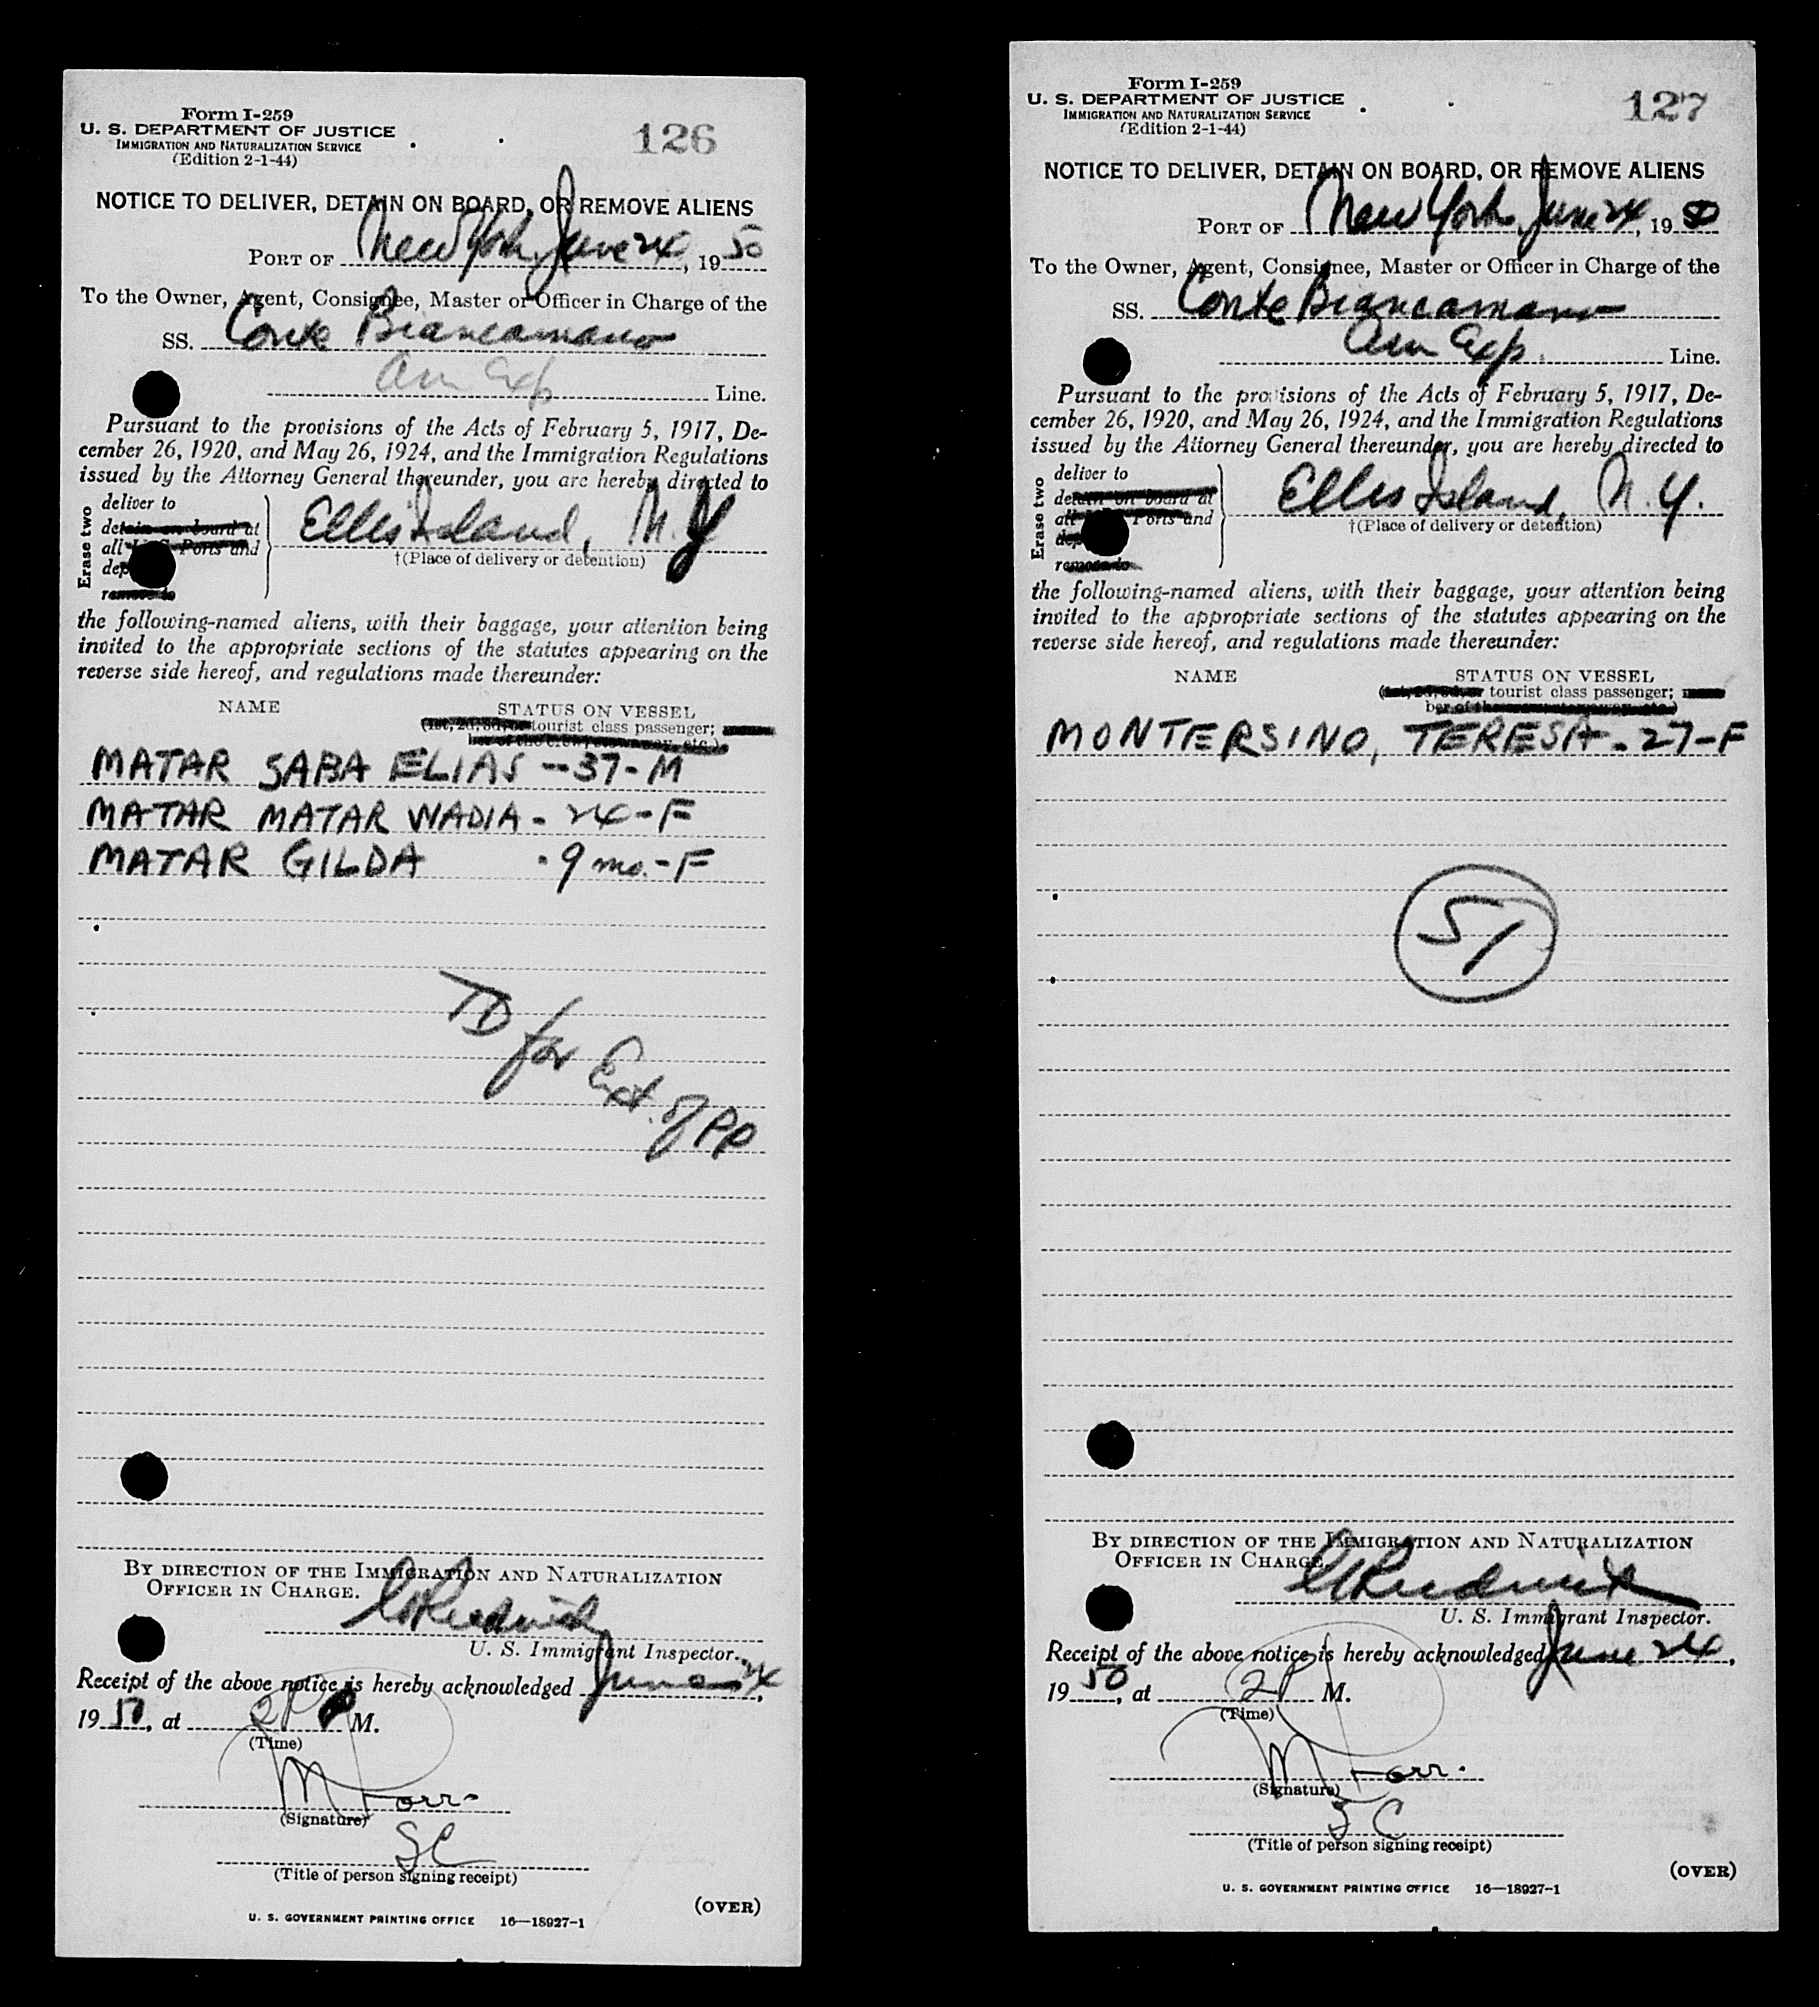 Form I-259
U. S. DEPARTMENT OF JUSTICE
IMMIGRATION AND NATURALIZATION SERVICE
(Edition 2-1-44)
126
NOTICE TO DELIVER, DETAIN ON BOARD, OR REMOVE ALIENS
PORT OF New York, June 24, 1950
To the Owner, Agent, Consignee, Master or Officer in Charge of the
SS. Conte Biancamano
Am Exp Line.
Pursuant to the provisions of the Acts of February 5, 1917, De-
cember 26, 1920, and May 26, 1924, and the Immigration Regulations
issued by the Attorney General thereunder, you are hereby directed to
Erase two
deliver to
detain on board at
all U. S. Ports and
dep
remove to
Ellis Island, N. Y
†(Place of delivery or detention)
the following-named aliens, with their baggage, your attention being
invited to the appropriate sections of the statutes appearing on the
reverse side hereof, and regulations made thereunder:
NAME STATUS ON VESSEL
(1st, 2d, 3d, or tourist class passenger; mem-
ber of the crew, stowaway, etc.)
MATAR SABA ELIAS - 37 - M
MATAR MATAR WADIA - 24 - F
MATAR GILDA - 9 mo. - F
TD for Ext. of PP
BY DIRECTION OF THE IMMIGRATION AND NATURALIZATION
OFFICER IN CHARGE.
U. S. Immigrant Inspector.
Receipt of the above notice is hereby acknowledged June 24,
1950, at 2P M.
(Time)
(Signature)
SC
(Title of person signing receipt)
(OVER)
U. S. GOVERNMENT PRINTING OFFICE 16—18927-1
Form I-259
U. S. DEPARTMENT OF JUSTICE
IMMIGRATION AND NATURALIZATION SERVICE
(Edition 2-1-44)
127
NOTICE TO DELIVER, DETAIN ON BOARD, OR REMOVE ALIENS
PORT OF New York, June 24, 1950
To the Owner, Agent, Consignee, Master or Officer in Charge of the
SS. Conte Biancamano
Am Exp. Line.
Pursuant to the provisions of the Acts of February 5, 1917, De-
cember 26, 1920, and May 26, 1924, and the Immigration Regulations
issued by the Attorney General thereunder, you are hereby directed to
Erase two
deliver to
detain on board at
all U. S. Ports and
dep
remove to
Ellis Island, N. Y.
†(Place of delivery or detention)
the following-named aliens, with their baggage, your attention being
invited to the appropriate sections of the statutes appearing on the
reverse side hereof, and regulations made thereunder:
NAME STATUS ON VESSEL
(1st, 2d, 3d, or tourist class passenger; mem-
ber of the crew, stowaway, etc.)
MONTERSINO, TERESA - 27-F
BY DIRECTION OF THE IMMIGRATION AND NATURALIZATION
OFFICER IN CHARGE.
U. S. Immigrant Inspector.
Receipt of the above notice is hereby acknowledged June 24,
1950, at 2P M.
(Time)
(Signature)
SC
(Title of person signing receipt)
(OVER)
U. S. GOVERNMENT PRINTING OFFICE 16—18927-1